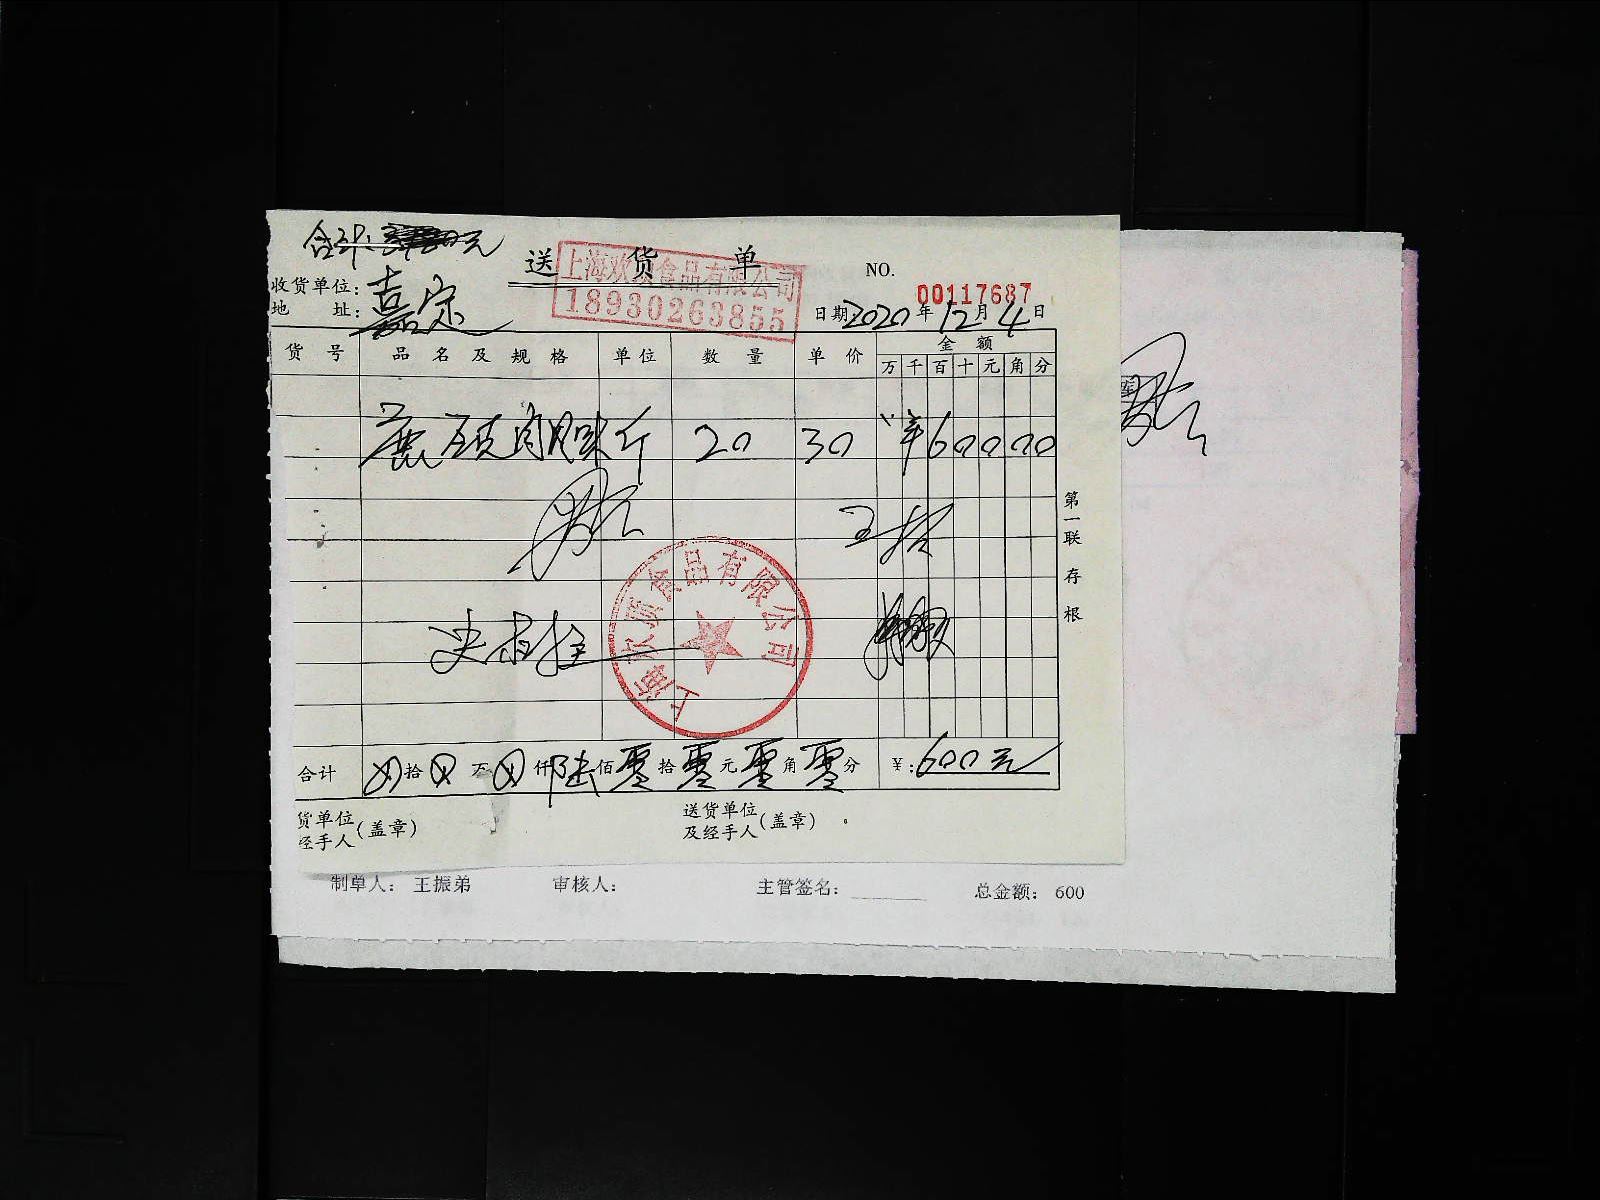 合计: 元
送货单
上海欢顶食品有限公司
18930263855
NO.
00117687
收货单位: 嘉定
地 址:
日期 2020 年 12 月 4 日
货号 品名及规格 单位 数量 单价 金额
万 千 百 十 元 角 分
斤 20 30 ¥60000
第一联 存根
上海欢顶食品有限公司
合计 拾 万 仟 陆 佰 零 拾 零 元 零 角 零 分 ¥: 600元
货单位
经手人 (盖章)
送货单位
及经手人 (盖章)
制单人: 王振弟 审核人: 主管签名: 总金额: 600